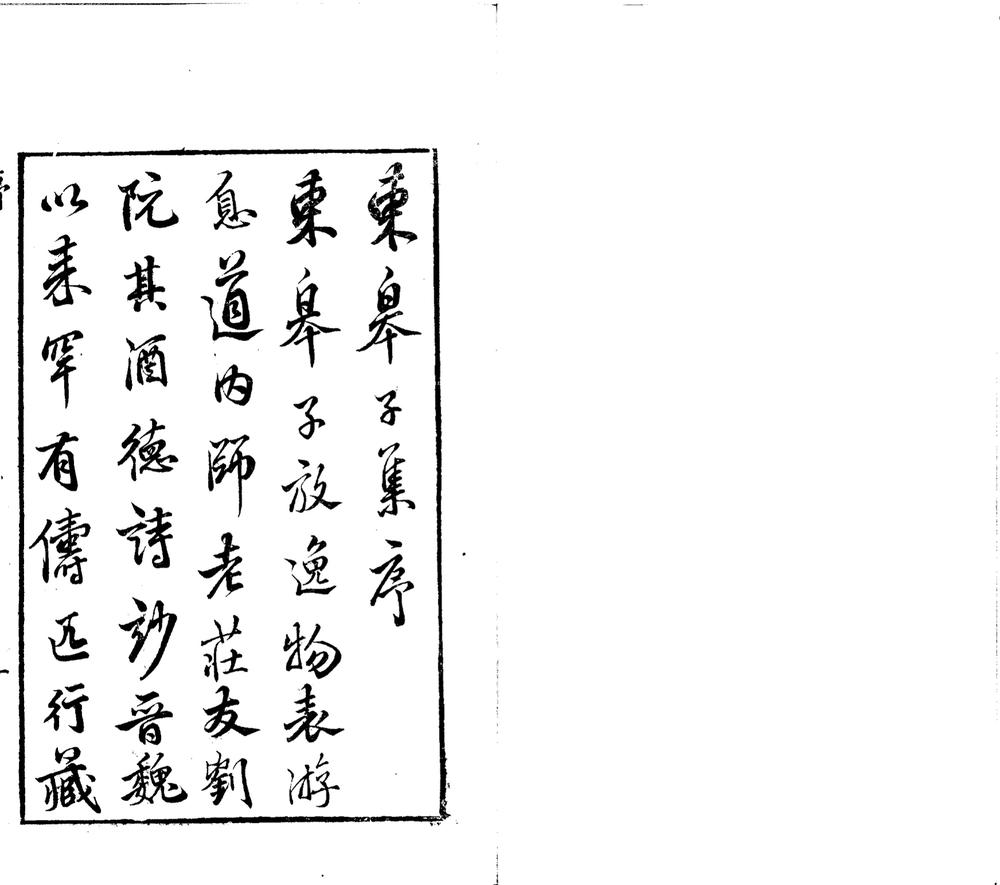 東皋子集序
東皋子放逸物表游
息道内師老莊友劉
阮其酒德詩妙晉魏
以来罕有儔匹行藏